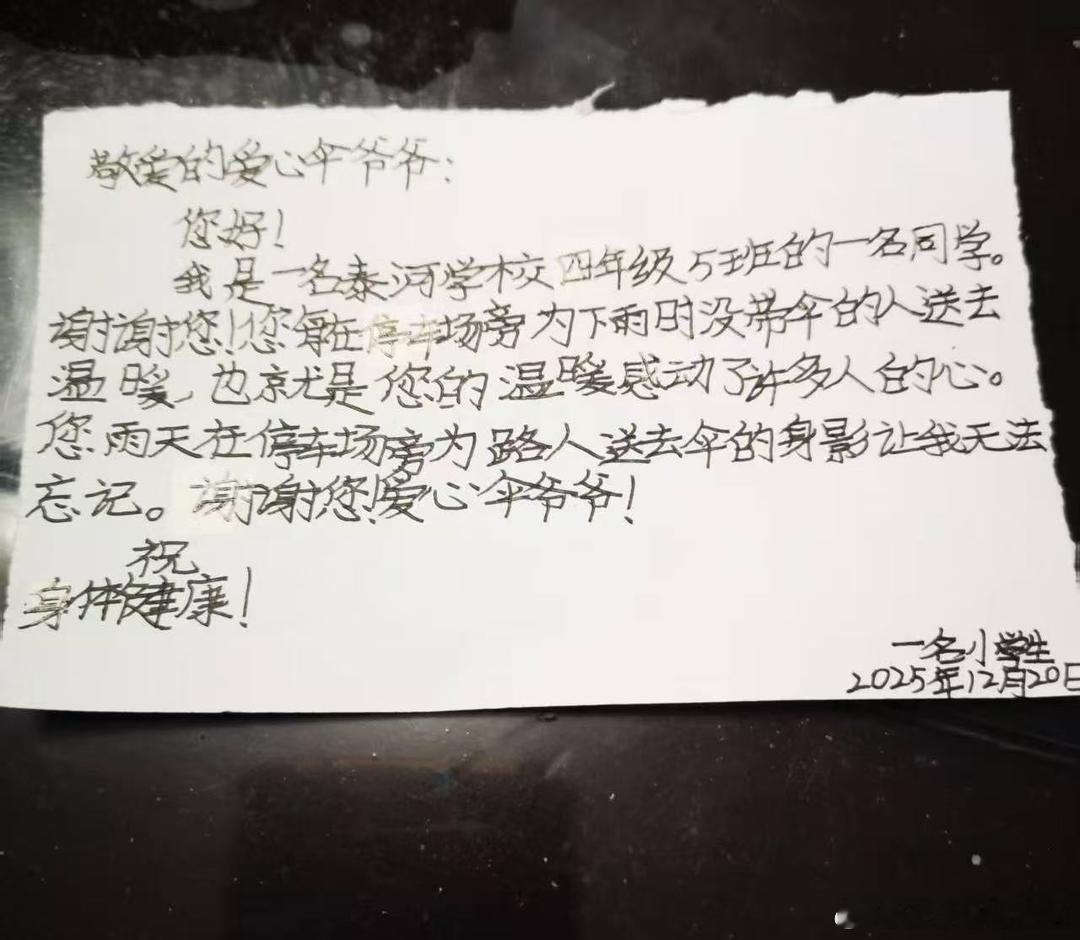 敬爱的爱心伞爷爷:
您好!
我是一名泰河学校四年级5班的一名同学。
谢谢您!您每在停车场旁为下雨时没带伞的人送去
温暖,也就是您的温暖感动了许多人的心。
您雨天在停车场旁为路人送去伞的身影让我无法
忘记。谢谢您!爱心伞爷爷!
祝
身体健康!
一名小学生
2025年12月20日